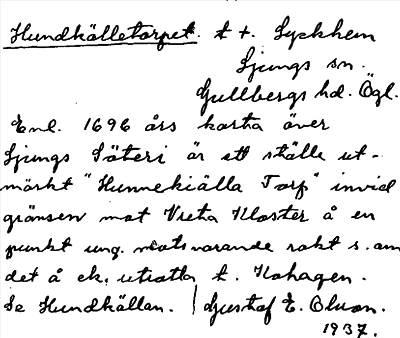 Hundkälletorpet. t t. Lyckhem
Ljungs sn.
Gullbergs hd. Ögl.
Enl. 1696 års karta över
Ljungs Säteri är ett ställe ut-
märkt "Hunnekiälla Torp" invid
gränsen mot Vreta Kloster å en
punkt ung. motsvarande rakt s. om
det å ek. utsatta t. Hohagen.
Se Hundkällan. | Gustaf E. Olson.
1937.